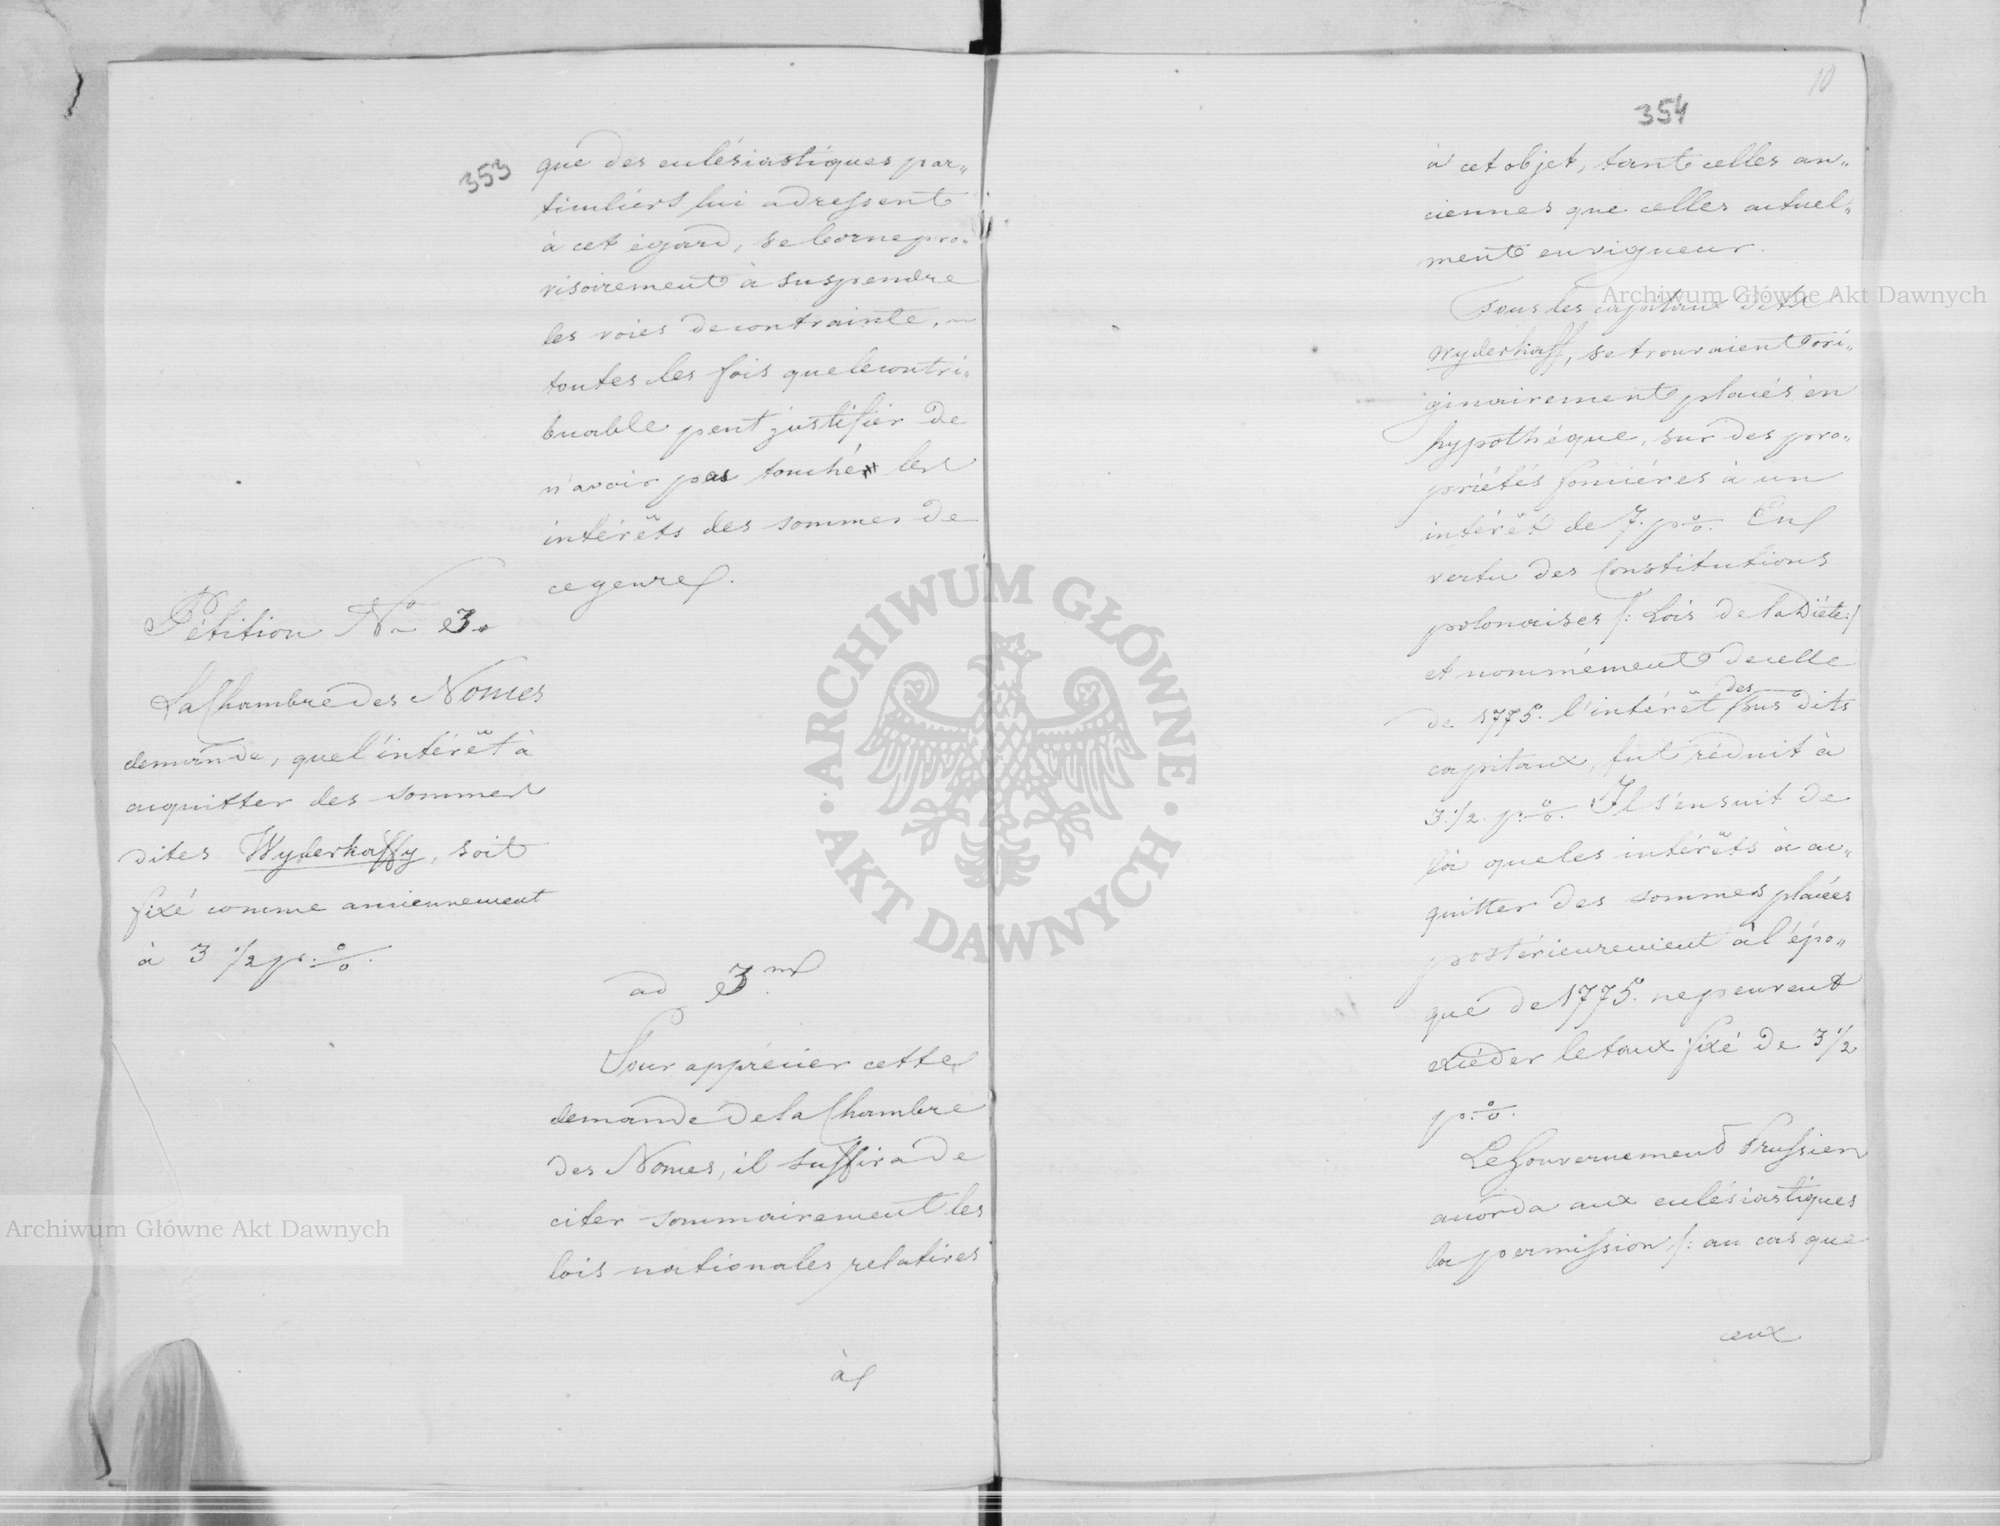 353
que des eclésiastiques par„
ticuliers lui adressent
à cet égard, se borne pro„
visoirement à suspendre
les voies de contrainte, ~
toutes les fois que le contri„
buable peut justifier de
n'avoir pas touché les
intérêts des sommes de
ce genre.
Pétition No 3.
La Chambre des Nonces
demande, que l'intérêt à
acquitter des sommes
dites Wyderkaffy, soit
fixé comme anciennement
à 3 1/2 p. %.
ad 3m
Pour apprécier cette
demande de la Chambre
des Nonces, il suffira de
citer sommairement les
lois nationales relatives
à
10
354
à cet objet, tant celles an„
ciennes que celles actuel„
ment en vigueur.
Tous les capitaux dits
Wyderkaff, se trouvaient ori„
ginairement placés en
hypothéque, sur des pro„
priétés foncières à un
intérêt de 7. p %. En
vertu des Constitutions
polonaises /: Lois de la Diéte:/
et nommément de celle
de 1775. l'intérêt des sus dits
capitaux, fut réduit à
3.1/2. p. %. Il s'en suit de
là que les intérêts à ac„
quitter des sommes placées
postérieurement à l'épo„
que de 1775. ne peuvent
excéder le taux fixé de 3 1/2
p. %.
Le Gouvernement Prussien
acorda aux eclésiastiques
la permission /: au cas que
ceux
Archiwum Główne Akt Dawnych
Archiwum Główne Akt Dawnych
ARCHIWUM GŁÓWNE
AKT DAWNYCH